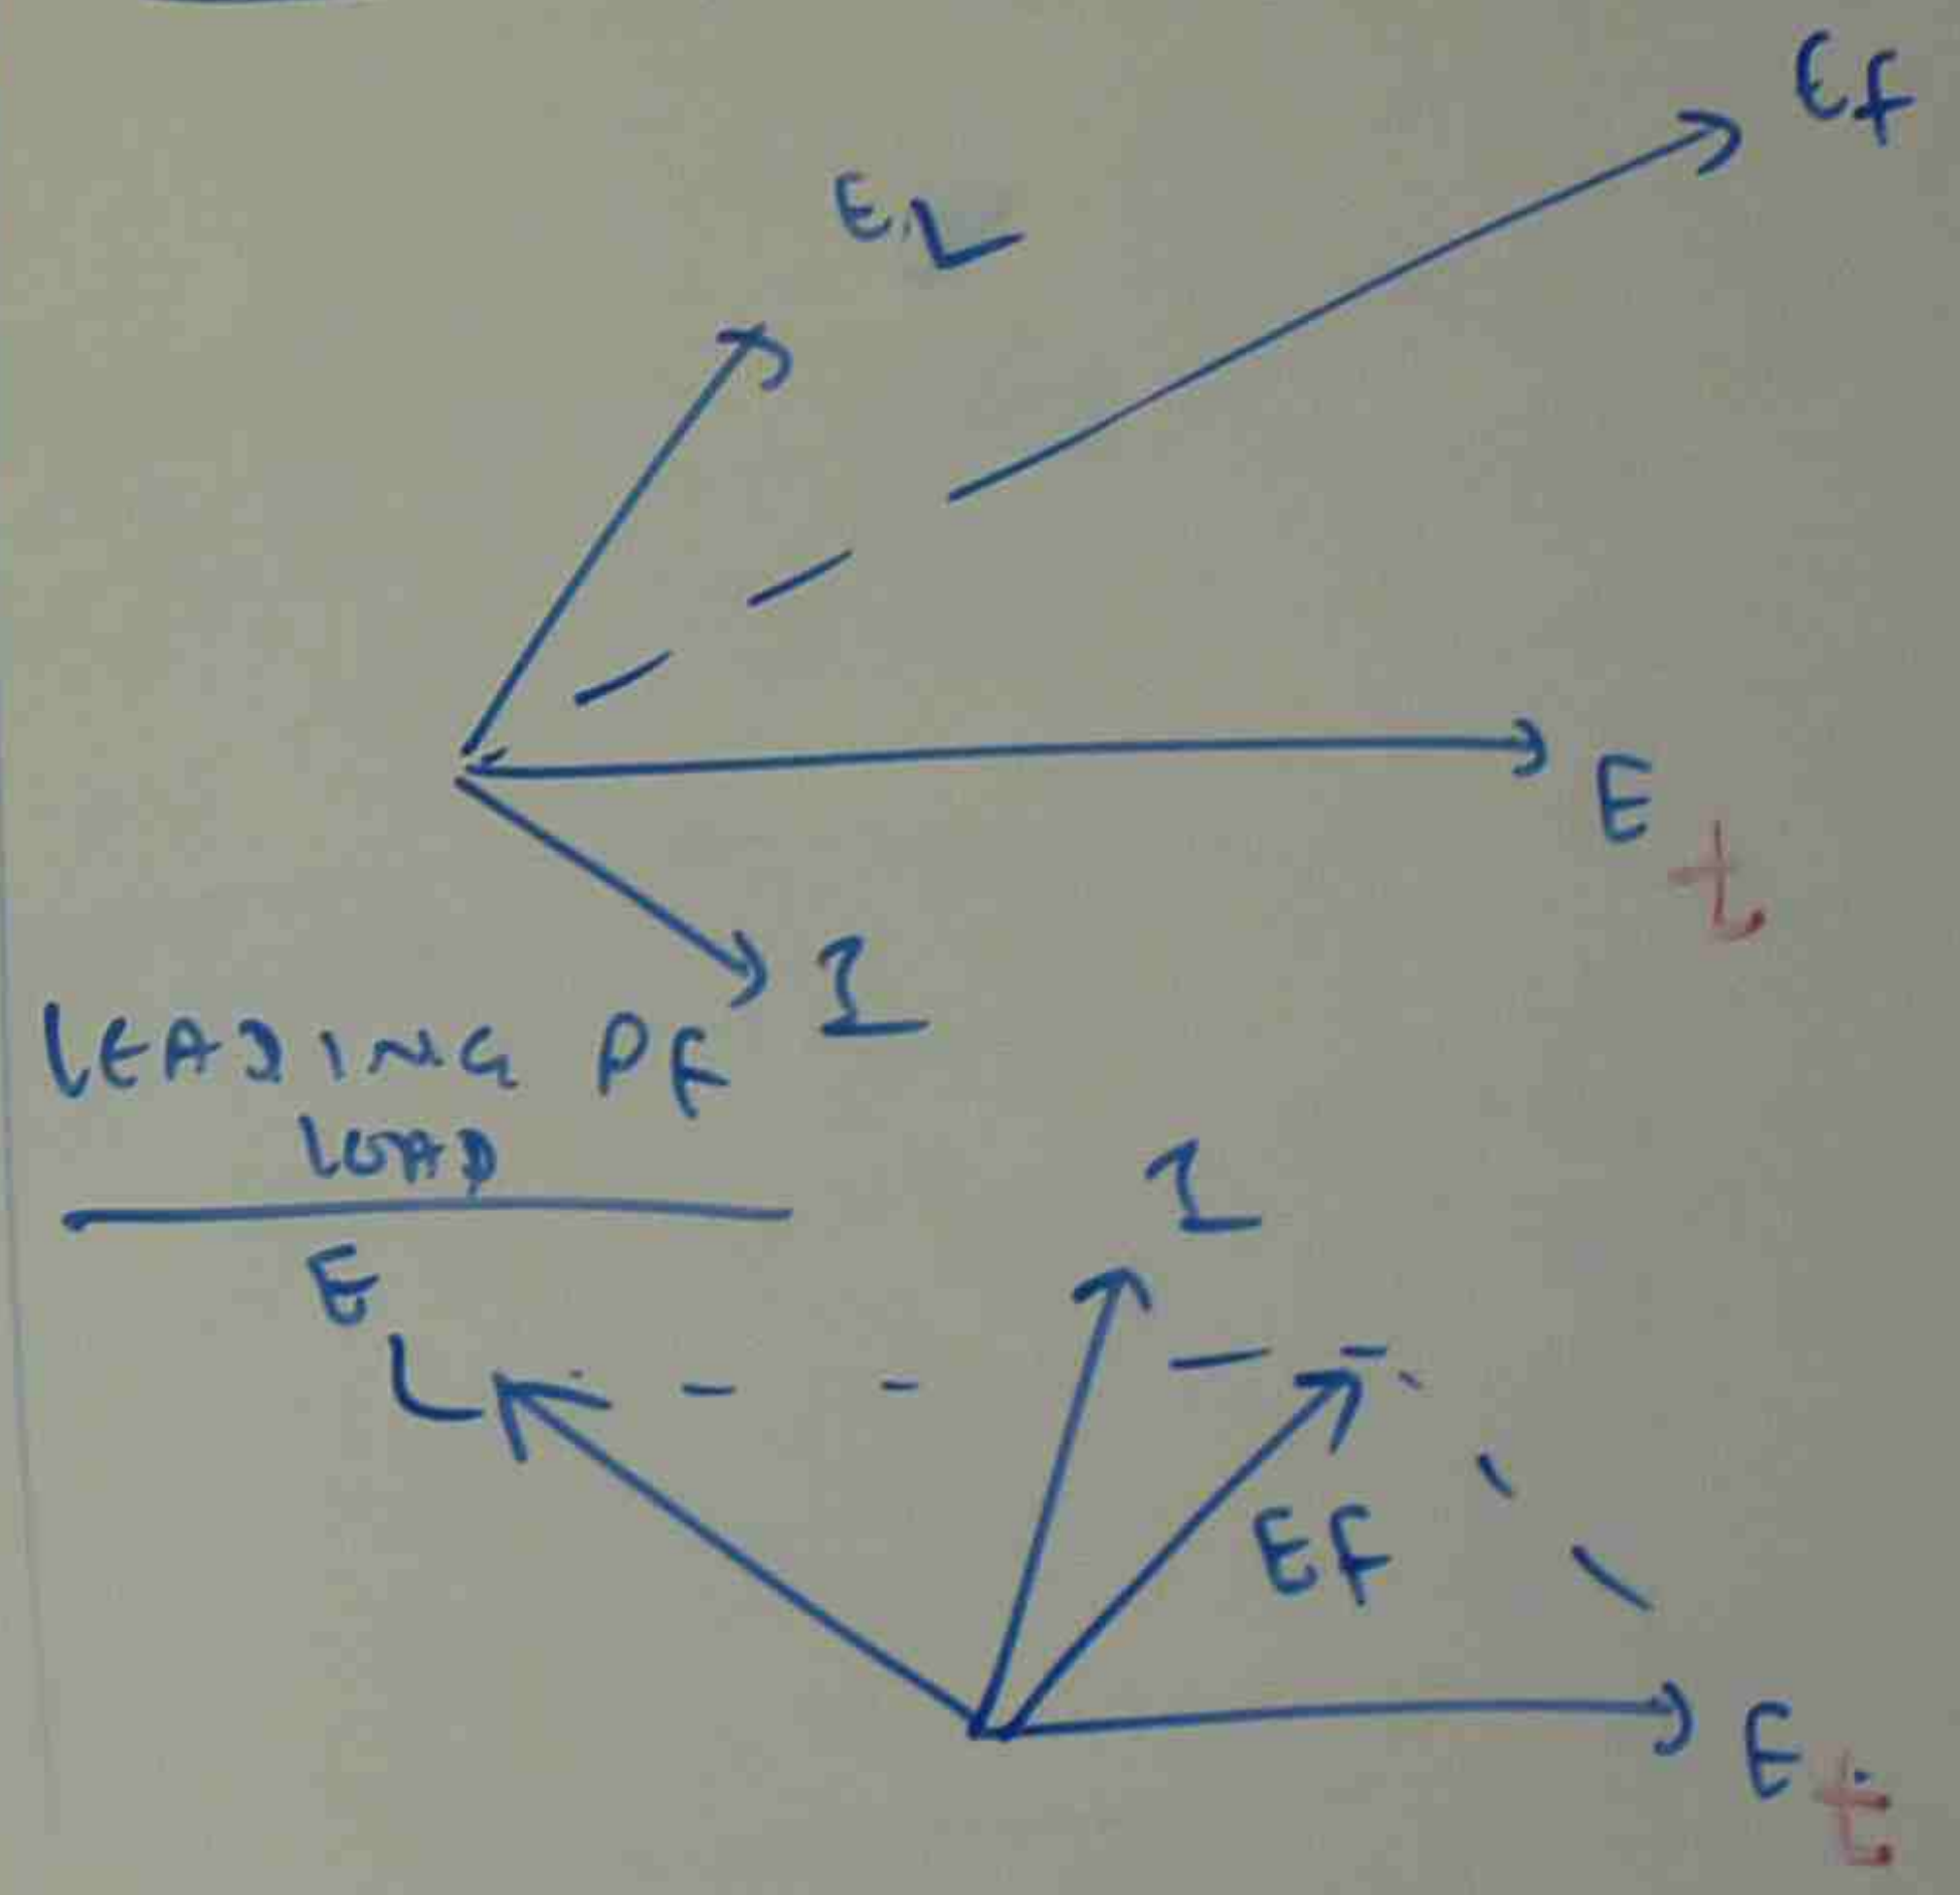 Ef
EL
Et
I
LEADING PF
LOAD
I
E
L
Ef
Et